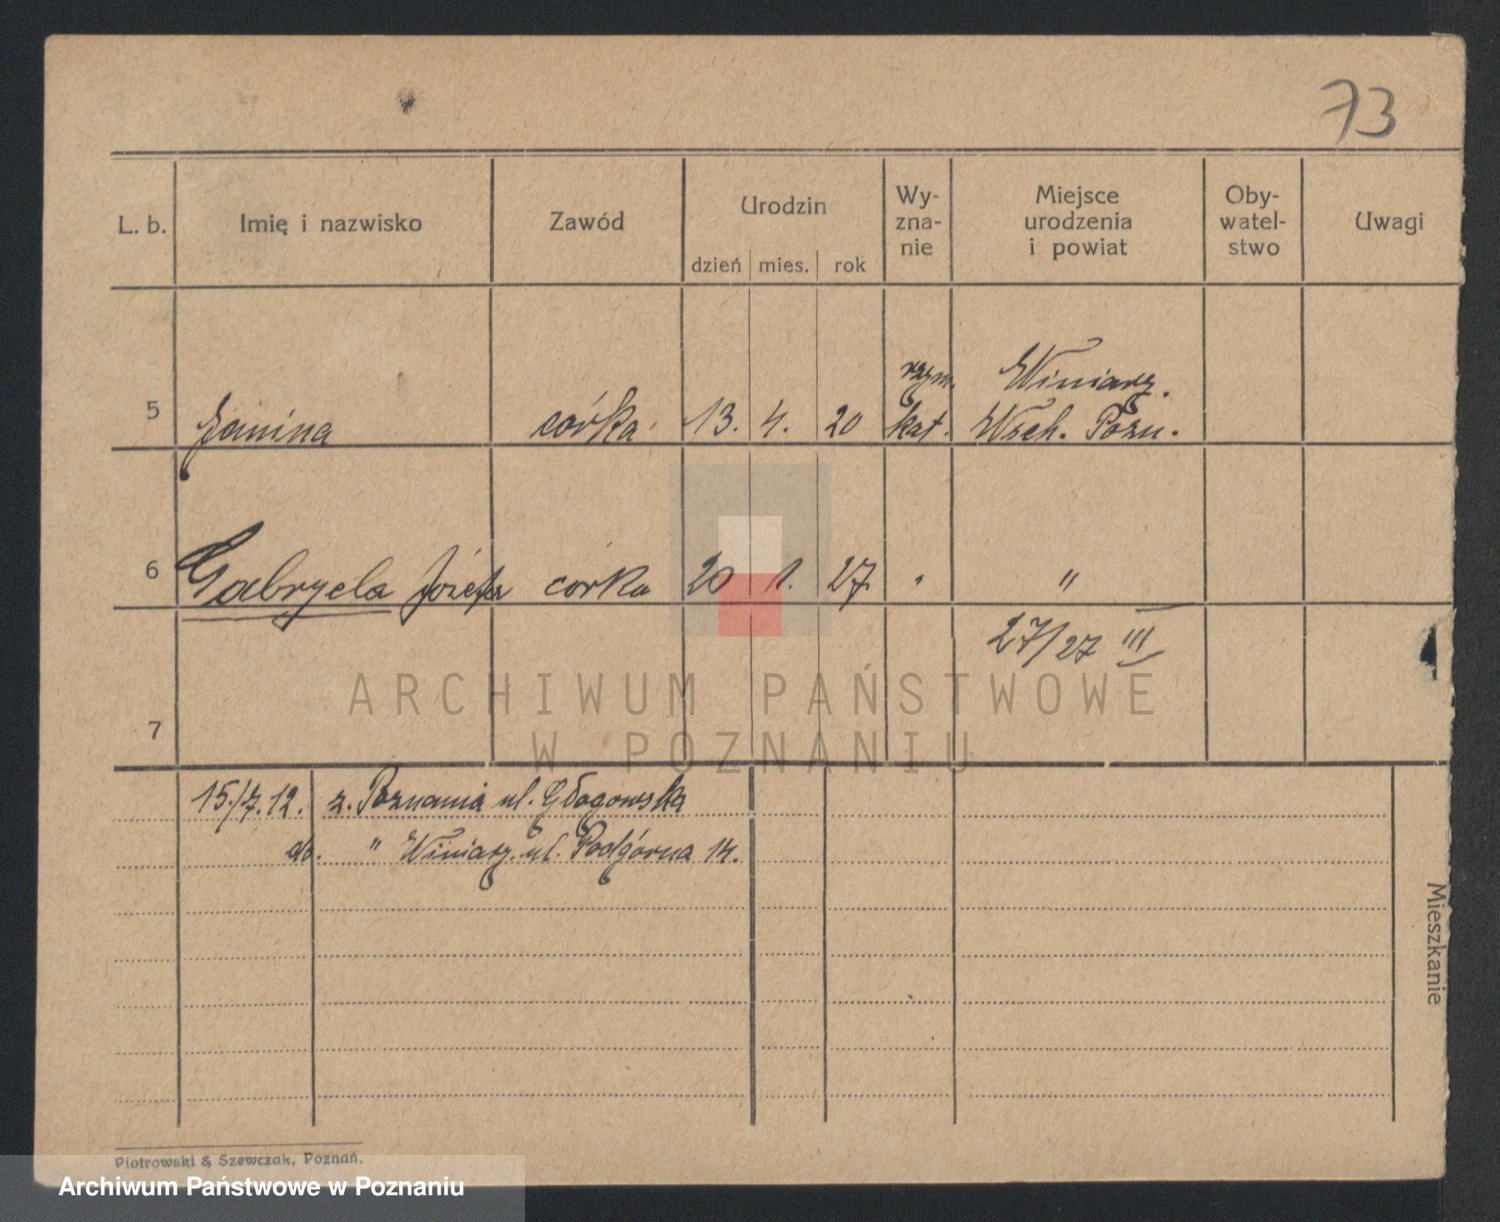 73
L. b. Imię i nazwisko Zawód Urodzin Wy-zna-nie Miejsce urodzenia i powiat Oby-watel-stwo Uwagi
dzień mies. rok
rzym. Winiary.
5 Janina córka 13. 4. 20 kat. Wsch. Pozn.
6 Gabryela Józefa córka 20 1. 27 " "
27/27 III
ARCHIWUM PAŃSTWOWE
W POZNANIU
7
15./7.12. z. Poznania ul. Głogowska
do. " Winiary. ul. Podgórna 14.
Mieszkanie
Piotrowski & Szewczak, Poznań.
Archiwum Państwowe w Poznaniu